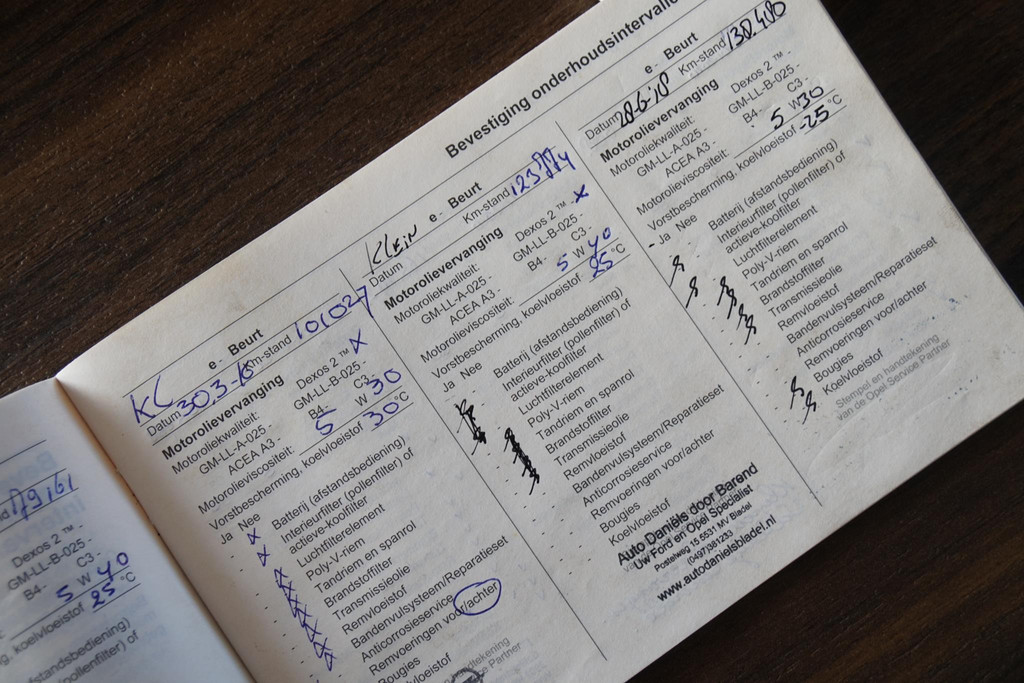 Bevestiging onderhoudsintervalle
d 179161
Dexos 2 ™ -
GM-LL-B-025 -
B4 - C3 -
5 W 40
g, koelvloeistof 25 °C
fstandsbediening)
pollenfilter) of
KL
e - Beurt
Datum 30.3-16 Km-stand 101027
Motorolievervanging
Motoroliekwaliteit: Dexos 2 ™ X
GM-LL-A-025 - GM-LL-B-025 -
ACEA A3 - B4 - C3 -
Motorolieviscositeit: 5 W 30
Vorstbescherming, koelvloeistof 30 °C
Ja Nee
Batterij (afstandsbediening)
Interieurfilter (pollenfilter) of
actieve-koolfilter
Luchtfilterelement
Poly-V-riem
Tandriem en spanrol
Brandstoffilter
Transmissieolie
Remvloeistof
Bandenvulsysteem/Reparatieset
Anticorrosieservice
Remvoeringen voor/achter
Bougies
Koelvloeistof
Klein
e - Beurt
Datum Km-stand
Motorolievervanging
Motoroliekwaliteit: Dexos 2 ™ - X
GM-LL-A-025 - GM-LL-B-025 -
ACEA A3 - B4 - C3 -
Motorolieviscositeit: 5 W 40
Vorstbescherming, koelvloeistof 25 °C
Ja Nee
Batterij (afstandsbediening)
Interieurfilter (pollenfilter) of
actieve-koolfilter
Luchtfilterelement
Poly-V-riem
Tandriem en spanrol
Brandstoffilter
Transmissieolie
Remvloeistof
Bandenvulsysteem/Reparatieset
Anticorrosieservice
Remvoeringen voor/achter
Bougies
Koelvloeistof
Auto Daniëls door Barend
Uw Ford en Opel Specialist
Postelweg 15 5531 MV Bladel
(0497)381233
www.autodanielsbladel.nl
e - Beurt
Datum 28-6-18 Km-stand 130.480
Motorolievervanging
Motoroliekwaliteit: Dexos 2 ™ -
GM-LL-A-025 - GM-LL-B-025 -
ACEA A3 - B4 - C3 -
Motorolieviscositeit: 5 W 30
Vorstbescherming, koelvloeistof -25 °C
Ja Nee
Batterij (afstandsbediening)
Interieurfilter (pollenfilter) of
actieve-koolfilter
Luchtfilterelement
Poly-V-riem
Tandriem en spanrol
Brandstoffilter
Transmissieolie
Remvloeistof
Bandenvulsysteem/Reparatieset
Anticorrosieservice
Remvoeringen voor/achter
Bougies
Koelvloeistof
Stempel en handtekening
van de Opel Service Partner